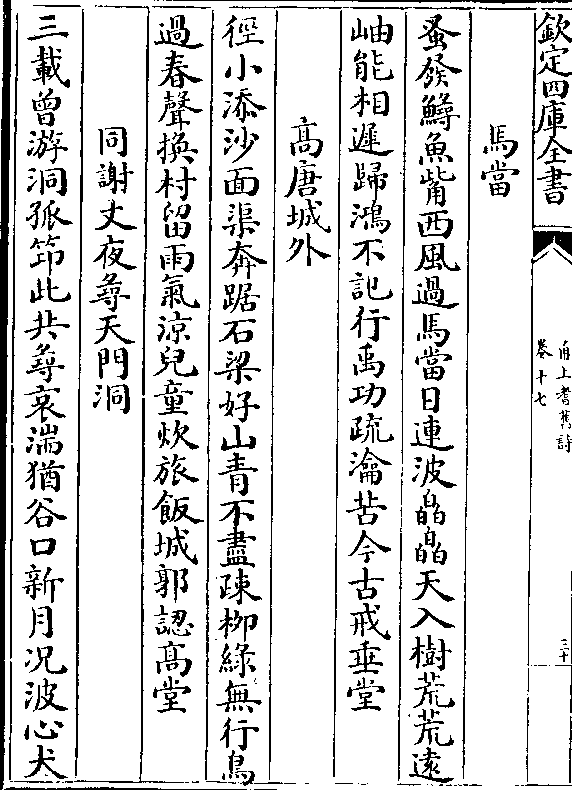 欽定四庫全書
甬上耆舊詩
卷十七
三十
馬當
蚤發鱘魚觜西風過馬當日連波皛皛天入樹荒荒遠
岫能相遲歸鴻不記行禹功疏瀹苦今古戒垂堂
高唐城外
徑小添沙面渠奔踞石梁好山青不盡疎柳綠無行鳥
過春聲換村留雨氣涼兒童炊旅飯城郭認高堂
同謝丈夜尋天門洞
三載曾游洞孤笻此共尋哀湍猶谷口新月况波心犬